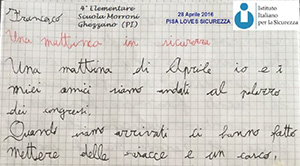 Francesco
4° Elementare
Scuola Morroni
Ghezzano (PI)
28 Aprile 2016
PISA LOVES SICUREZZA
Istituto
Italiano
per la Sicurezza
Una mattinata in sicurezza
Una mattina di Aprile io e i
miei amici siamo andati al palazzo
dei congressi.
Quando siamo arrivati ci hanno fatto
mettere delle e un casco,